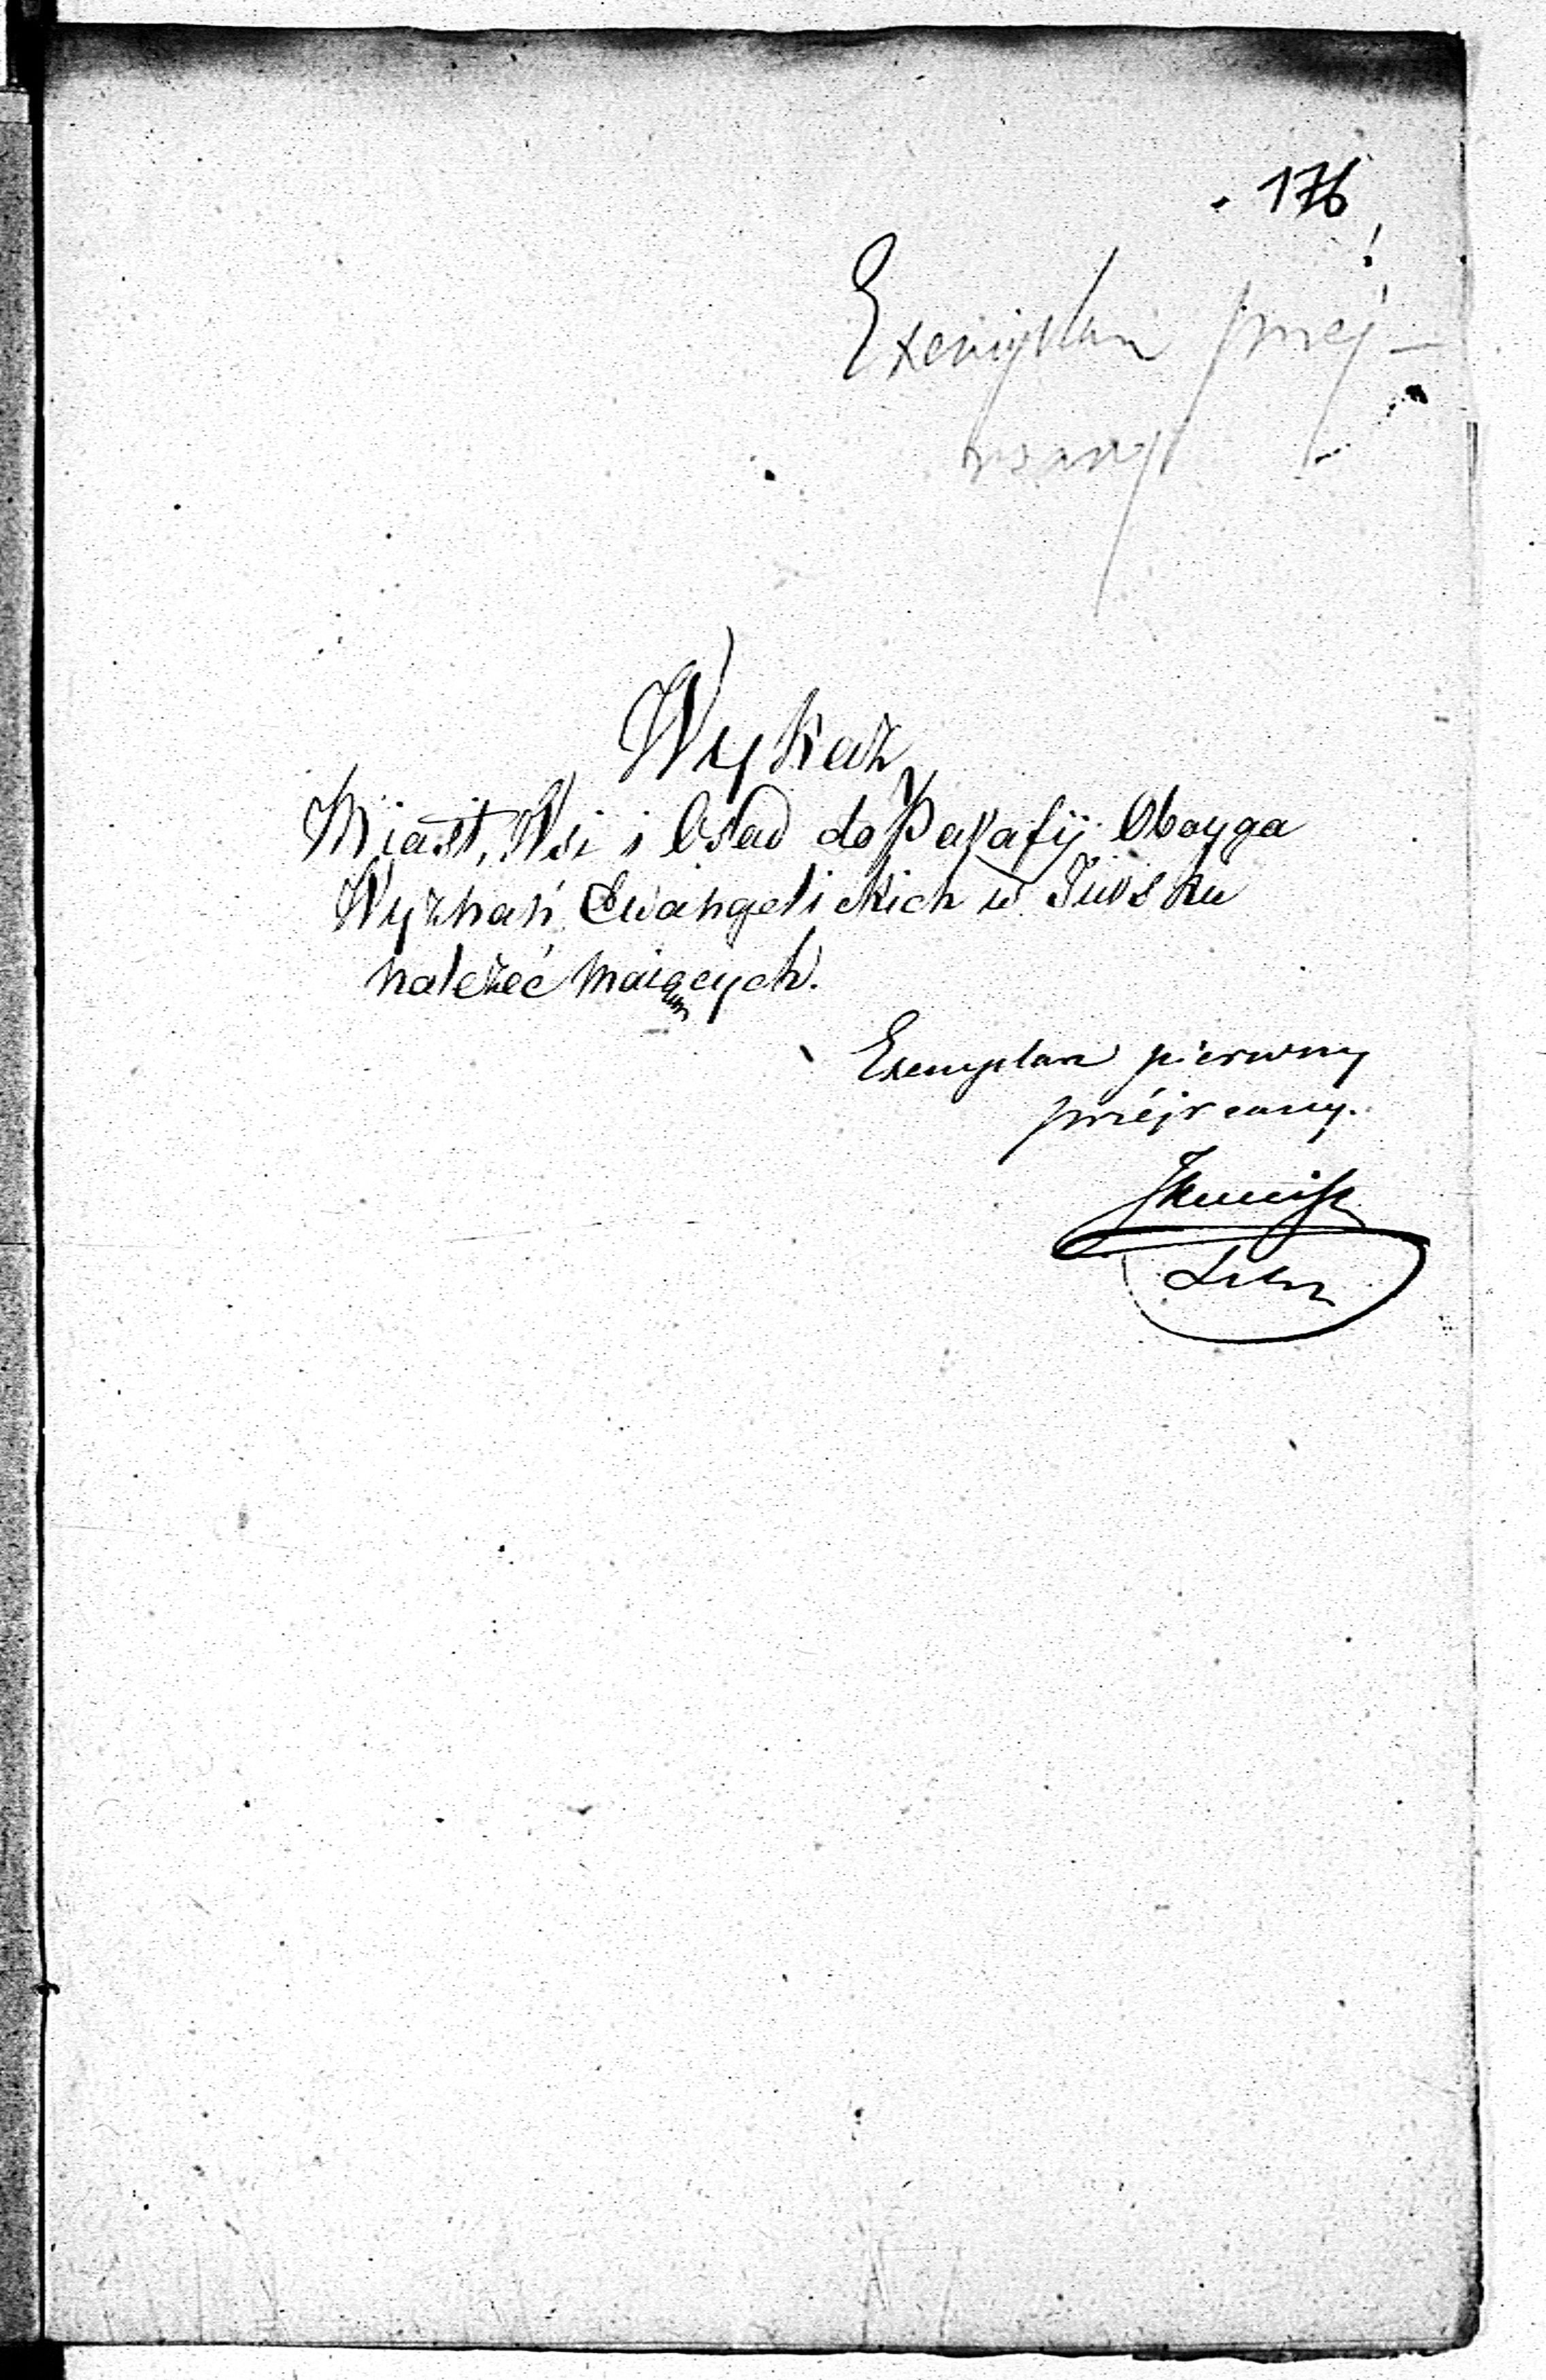 176
Exemplarz przéj-
rzany
Wykaz
Miast, Wsi i Osad do Parafij Obojga
Wyznań Ewangelickich w Turs ku
należeć maiących.
Exemplarz pierwszy
przéjrzany.